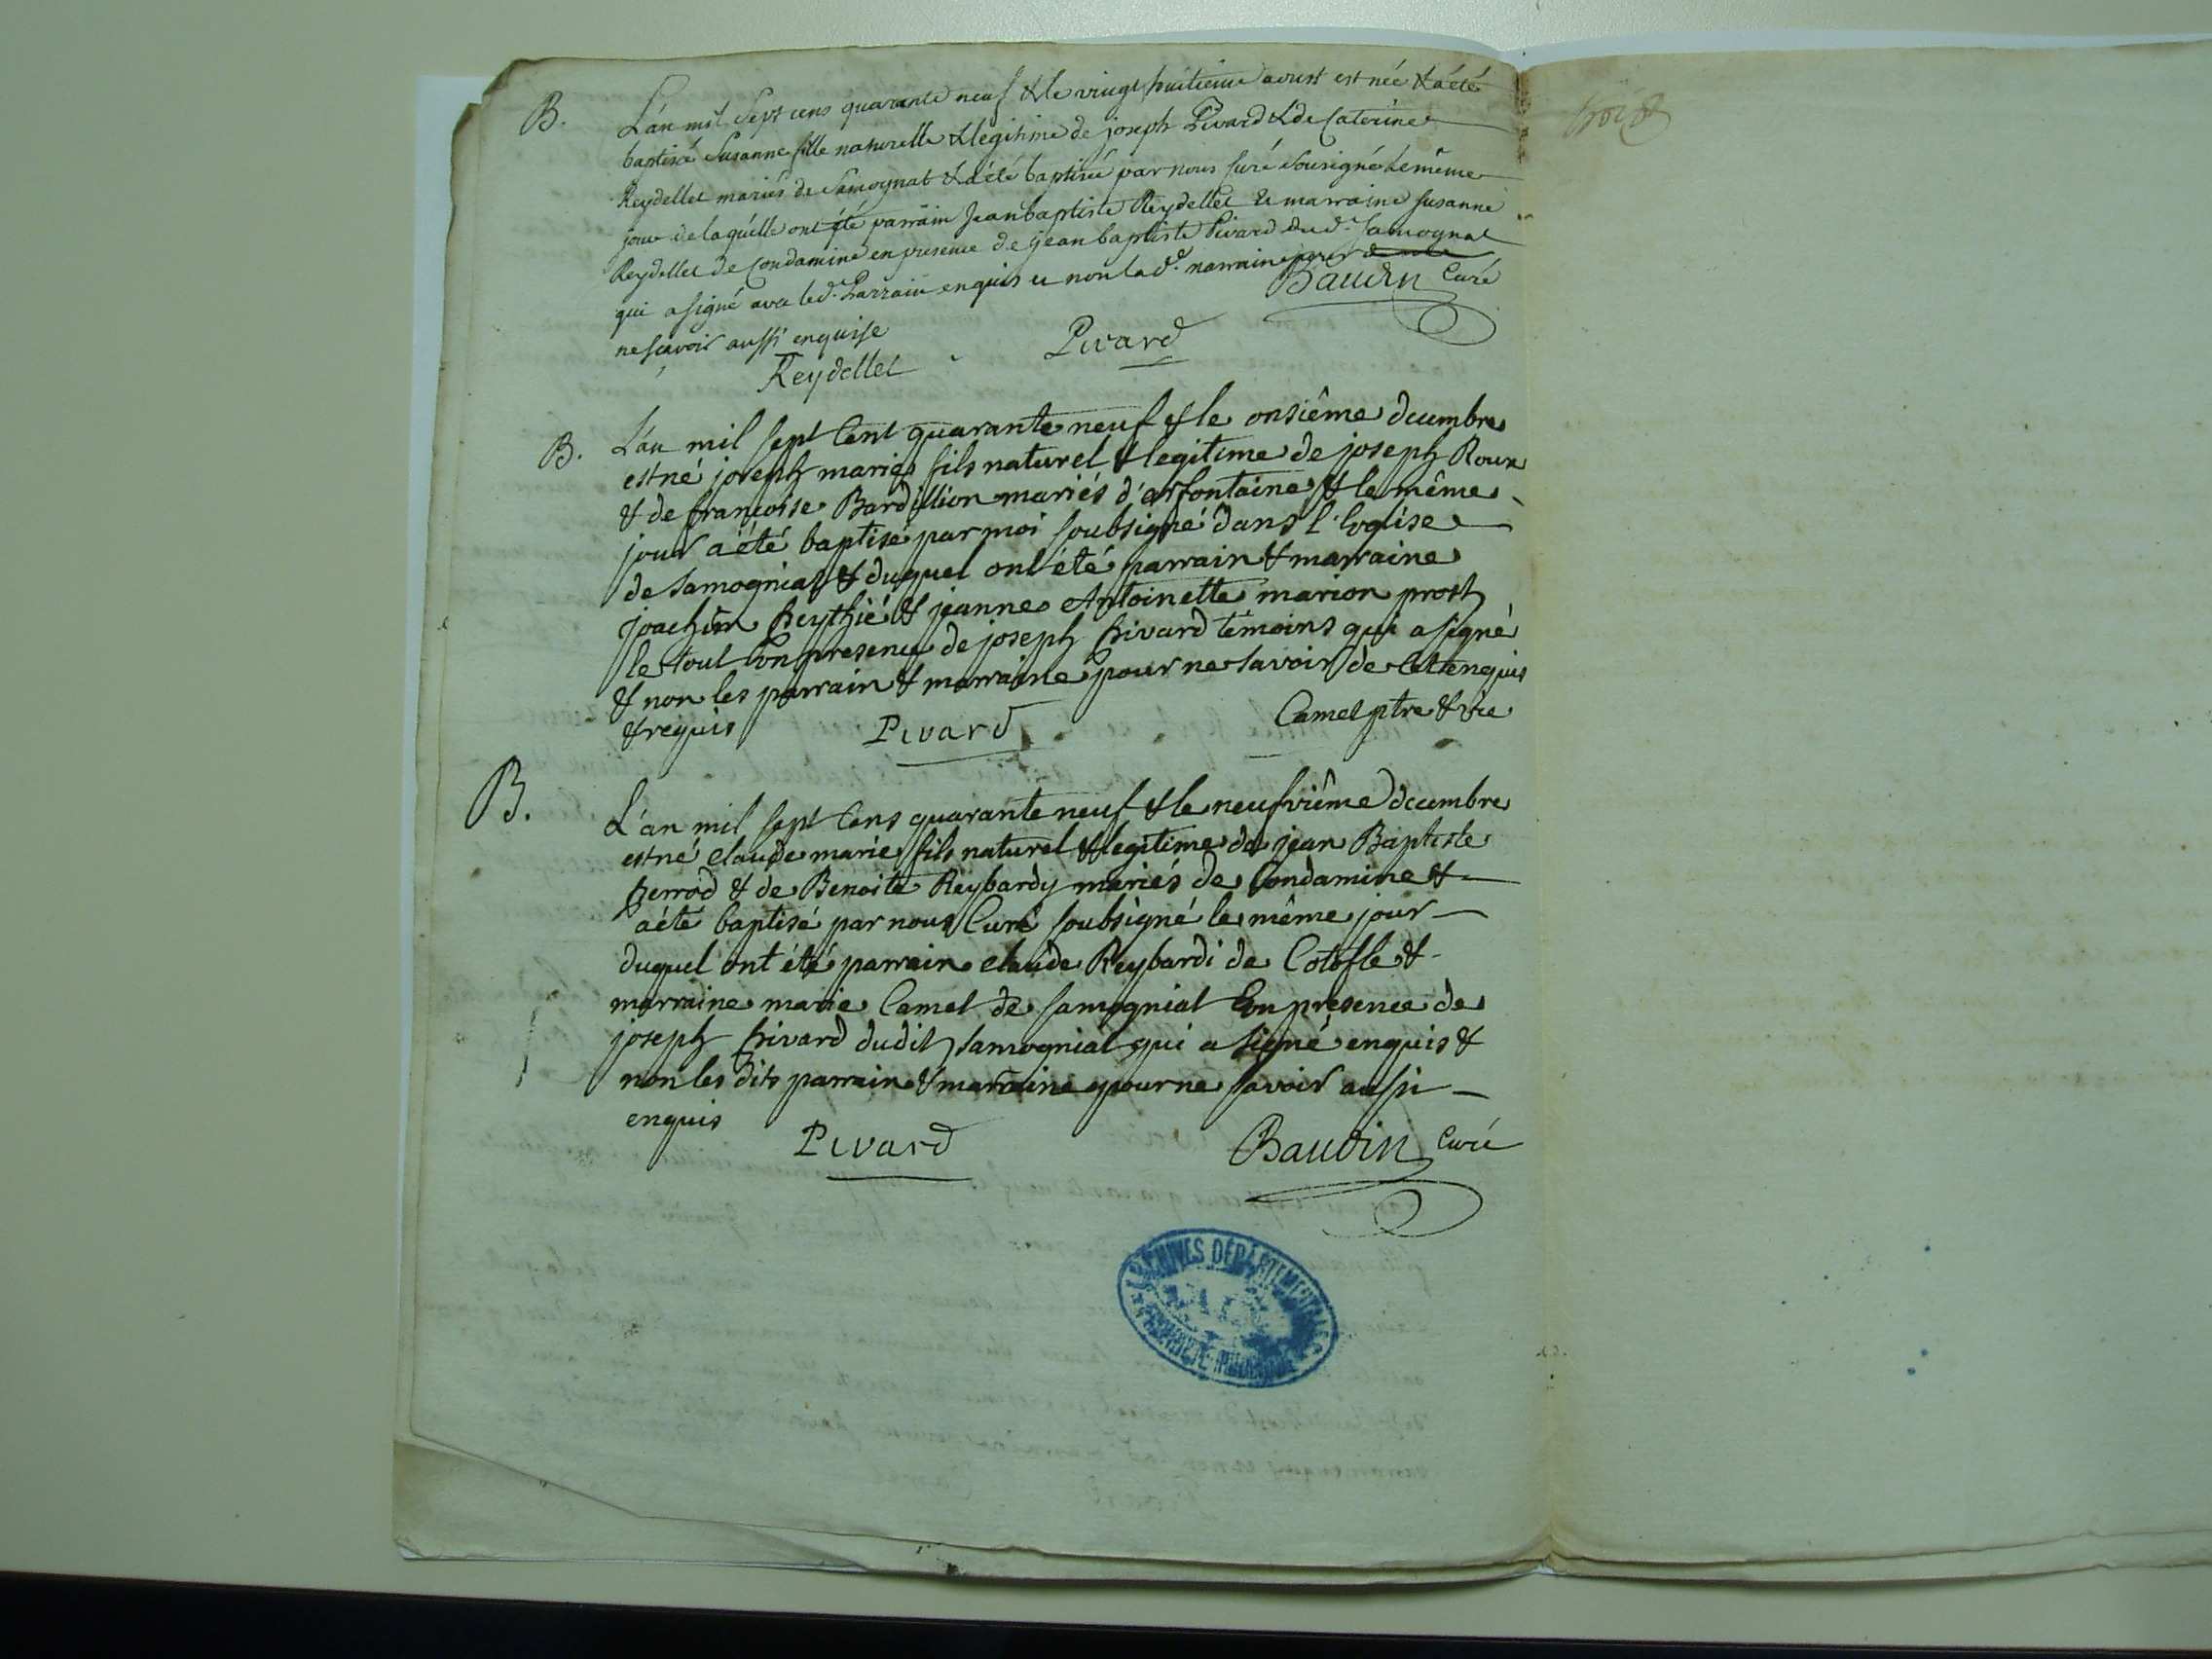 B. L'an mil Sept cens quarante neuf & le vingt huitieme aoust est née & a été
baptisé Susanne fille naturelle & legitime de joseph Pivard & de Caterine
Reydellet mariés de Samognat & a été baptisée par nous Curé Sousigné le même
jour de laquelle ont été parrain Jean baptiste Reydellet et marraine susanne
Reydellet de Condamine en presence de jean baptiste Pivard dud. Samognat
qui a signé avec led. Parrain enquis et non lad. marraine pour
ne sçavoir aussi enquise
Baudin Curé
Reydellet Pivard
B. L'an mil sept Cent quarante neuf & le onsième decembre
est né joseph marie fils naturel & legitime de joseph Roux
& de francoise Bardillion mariés d'arfontaine & le même
jour a été baptisé par moi soubsigné dans l'Eglise
de samogniat & duquel ont été parrain & marraine
joachim Reythié & jeanne Antoinette marion prost
le tout En presence de joseph Pivard témoins qui a signé
& non les parrain & marraine pour ne savoir de Cet enquis
& requis Pivard Camel ptre & vic
B. L'an mil sept Cens quarante neuf & le neufvième decembre
est né claude marie fils naturel & legitime de jean Baptiste
perrod & de Benoite Reybardy mariés de Condamine &
a été baptisé par nous Curé soubsigné le même jour
duquel ont été parrain claude Reybardi de Cotofle &
marraine marie Camel de samogniat En presence de
joseph Pivard dudit samogniat qui a signé enquis &
non les dits parrain & marraine pour ne savoir aussi
enquis
Pivard Baudin Curé
ARCHIVES DÉPARTEMENTALES